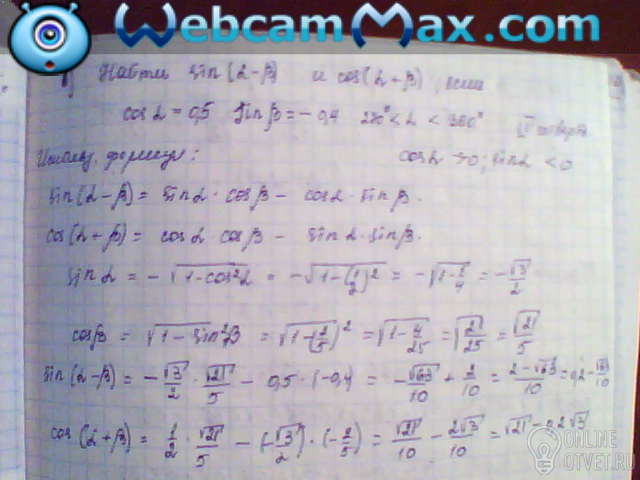 WebcamMax.com
1) Найти sin(α-β) и cos(α+β), если
cos α = 0,5 sin β = -0,4 270° < α < 360°
IV четверть
Использ. формулы: cos α > 0; sin α < 0
sin(α-β) = sin α · cos β - cos α · sin β.
cos(α+β) = cos α · cos β - sin α · sin β.
sin α = -√(1-cos²α) = -√(1-(1/2)²) = -√(1-1/4) = -√3/2
cos β = √(1-sin²β) = √(1-(2/5)²) = √(1-4/25) = √(21/25) = √21/5
sin(α-β) = -√3/2 · √21/5 - 0,5 · (-0,4) = -√63/10 + 2/10 = (2-√63)/10 = 0,2 - √63/10
cos(α+β) = 1/2 · √21/5 - (-√3/2) · (-2/5) = √21/10 - 2√3/10 = √21 - 0,2√3
ONLINE
OTVET.RU